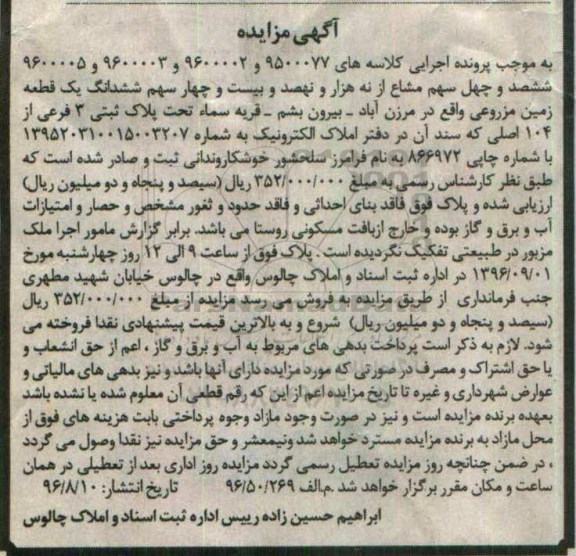 آگهی مزایده
به موجب پرونده اجرایی کلاسه های ۹۵۰۰۰۷۷ و ۹۶۰۰۰۰۲ و ۹۶۰۰۰۰۳ و ۹۶۰۰۰۰۵
ششصد و چهل سهم مشاع از نه هزار و نهصد و بیست و چهار سهم ششدانگ یک قطعه
زمین مزروعی واقع در مرزن آباد ـ بیرون بشم ـ قریه سماء تحت پلاک ثبتی ۳ فرعی از
۱۰۴ اصلی که سند آن در دفتر املاک الکترونیک به شماره ۱۳۹۵۲۰۳۱۰۰۱۵۰۰۳۲۰۷
با شماره چاپی ۸۶۶۹۷۲ به نام فرامرز سلحشور خوشکاروندانی ثبت و صادر شده است که
طبق نظر کارشناس رسمی به مبلغ ۳۵۲/۰۰۰/۰۰۰ ریال (سیصد و پنجاه و دو میلیون ریال)
ارزیابی شده و پلاک فوق فاقد بنای احداثی و فاقد حدود و ثغور مشخص و حصار و امتیازات
آب و برق و گاز بوده و خارج ازبافت مسکونی روستا می باشد. برابر گزارش مامور اجرا ملک
مزبور در طبیعتی تفکیک نگردیده است . پلاک فوق از ساعت ۹ الی ۱۲ روز چهارشنبه مورخ
۱۳۹۶/۰۹/۰۱ در اداره ثبت اسناد و املاک چالوس واقع در چالوس خیابان شهید مطهری
جنب فرمانداری از طریق مزایده به فروش می رسد مزایده از مبلغ ۳۵۲/۰۰۰/۰۰۰ ریال
(سیصد و پنجاه و دو میلیون ریال) شروع و به بالاترین قیمت پیشنهادی نقدا فروخته می
شود. لازم به ذکر است پرداخت بدهی های مربوط به آب و برق و گاز ، اعم از حق انشعاب و
یا حق اشتراک و مصرف در صورتی که مورد مزایده دارای آنها باشد و نیز بدهی های مالیاتی و
عوارض شهرداری و غیره تا تاریخ مزایده اعم از این که رقم قطعی آن معلوم شده یا نشده باشد
بعهده برنده مزایده است و نیز در صورت وجود مازاد وجوه پرداختی بابت هزینه های فوق از
محل مازاد به برنده مزایده مسترد خواهد شد ونیمعشر و حق مزایده نیز نقدا وصول می گردد
، در ضمن چنانچه روز مزایده تعطیل رسمی گردد مزایده روز اداری بعد از تعطیلی در همان
ساعت و مکان مقرر برگزار خواهد شد .م.الف ۹۶/۵۰/۲۶۹ تاریخ انتشار: ۹۶/۸/۱۰
ابراهیم حسین زاده رییس اداره ثبت اسناد و املاک چالوس